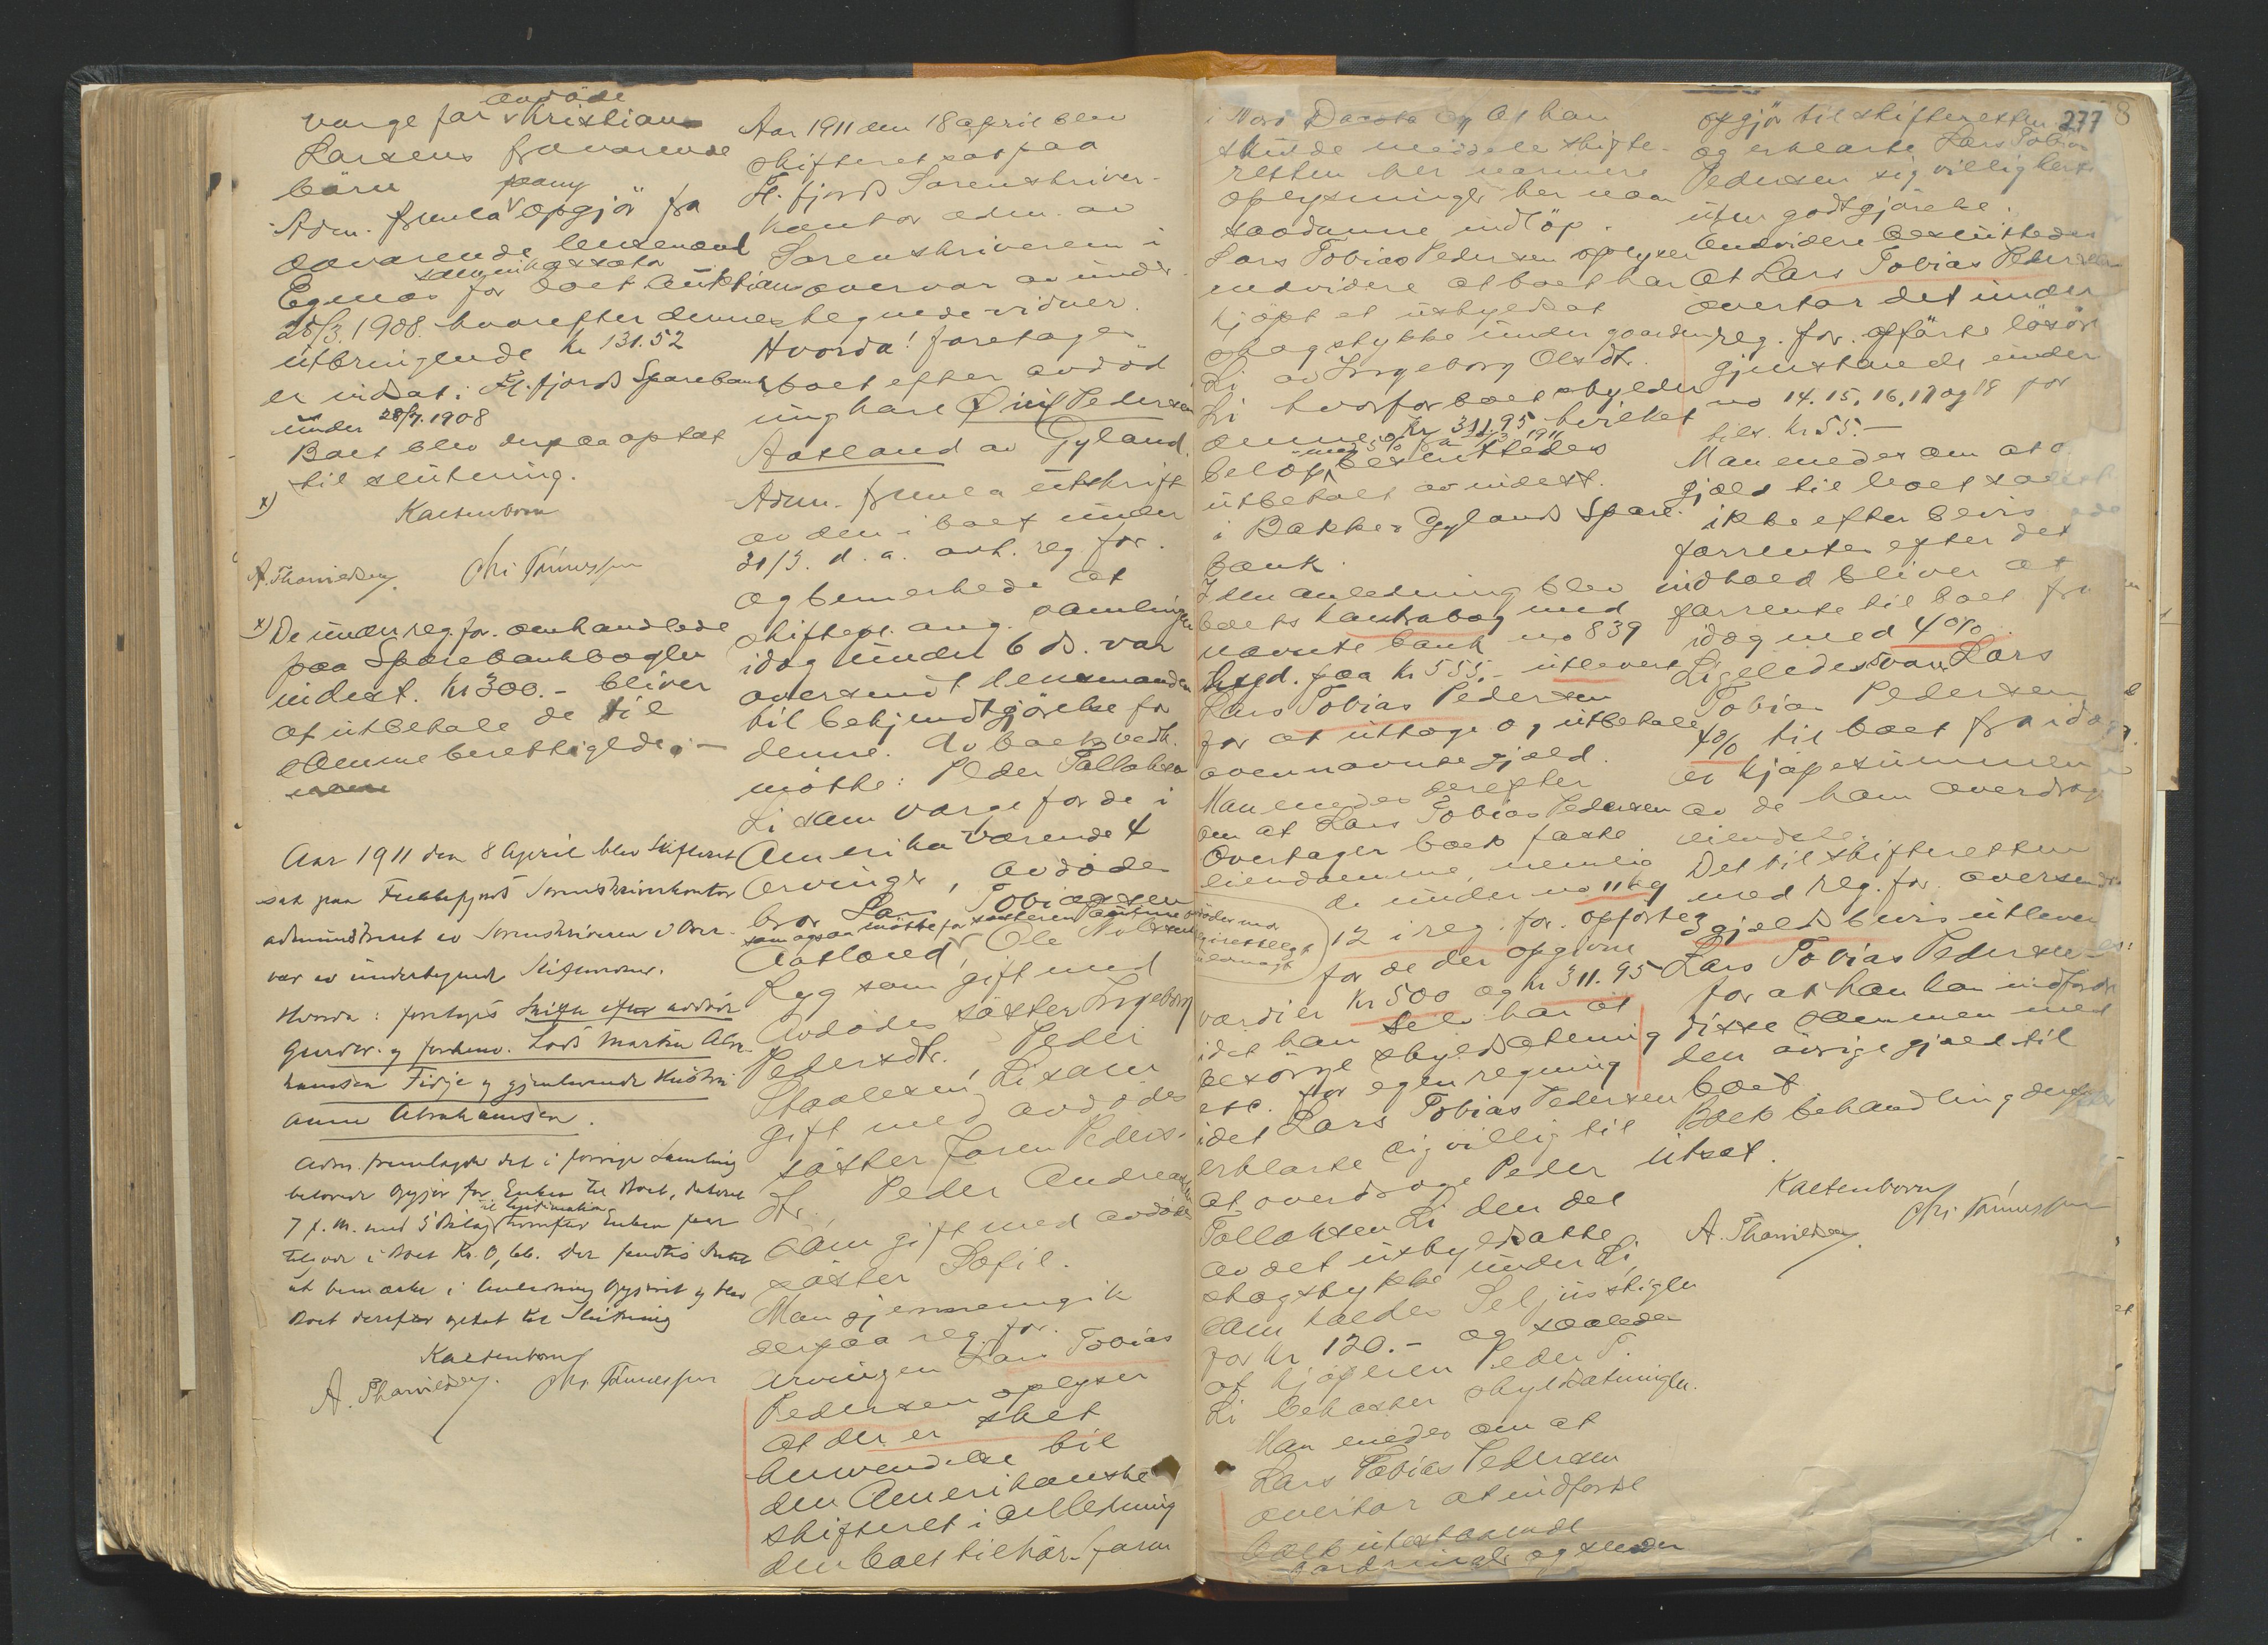 avdøde
værge for Kristian
Larsens fraværende
børn
paany
Adm. freml. opgjør fra
daværende lensmand
som inkassator
Egenæs for boets Auktion
28/3.1908. hvorefter dennes
utbringende kr 131.52
er indsat i Fl.fjords Sparebank
under 28/7.1908
Boet blev derpaa optat
til slutning.
x)
Kaltenborn
A. Thorvildsen
x) De under reg. for. omhandlede
paa Sparebankbogen
indest. kr 300.- bliver
at utbetale de til
samme berettigede.-
Aar 1911 den 8 April blev Skifteret
sat paa Flekkefjords Sorenskriverkontor
administreret av Sorenskriveren i Over-
vær av undertegnede Skiftevidner.
Hvorda: foretages Skifte efter avdøde
Gaardbr. og forhenv. Lods Martin Abra-
hamsen Fidje og gjenlevende Hustru
Anne Abrahamsen.
Adm. fremlagde det i forrige Samling
bebudede Opgjør for Enken til Boet, dateret
7 f. M. med 5 Bilag til Legitimation hvorefter Enken faar
tilgode i Boet Kr. 0,66. Der fandtes Intet
at bemærke i Anledning Opgjøret og blev
Boet derefter optat til Slutning
Kaltenborn
A. Thorvildsen
Aar 1911 den 18 april blev
skifteret sat paa
Fl.fjords Sorenskriver-
kontor adm. av
Sorenskriveren i
overvær av under-
tegnede vidner.
Hvorda! foretages
boet efter avdød
ungkarl Pedersen
Aatland av Gyland.
Adm. freml. utskrift
av den i boet under
31/3. d. a. avh. reg. for.
og bemerkede at
skiftepl. ang. samlingen
idag under 6 ds. var
oversendt lensmanden
til bekjendtgjørelse for
denne. Av boets vedk.
møtte: Peder Tollaksen
Li som værge for de i
Amerika værende 4
arvinger, avdødes
bror Lars Tobias Pedersen
som ogsaa møtte for søsteren
Aatland, Ole
Ryg som gift med
avdødes søster Ingeborg
Pedersdtr. Peder
Staalesen Li som
gift med avdødes
søster Joren Peders-
dtr. Peder Andreas
som gift med avdødes
søster Sofie.
Man gjennemgik
derpaa reg. for.
Arvingen Lars Tobias
Pedersen oplyser
at der er skeet
henvendelse til
den Amerikanske
skifteret i anledning
den boet tilhør. farm
277
i Nord Dacota og at han
skulde meddele skifte-
retten her nærmere
oplysninger her naar
saadanne indløp.
Lars Tobias Pedersen oplyser
endvidere at boet har
kjøpt et utskyldsat
skogstykke under gaarden
Li av Ingeborg Olsdtr.
Li hvorfor boet skylder
denne kr 311.95 hvilket
med 5% fra 1911
beløp besluttedes
utbetalt av indest.
i Bakke & Gylands Spare-
bank.
I den anledning blev
boets kontrabog med
nævnte bank no 839
lydd. paa kr 555.- utlevert
Lars Tobias Pedersen
for at uttage og utbetale
ovennævnte gjæld.
Man enedes derefter
om at Lars Tobias Pedersen
overtager boets faste
eiendomme, nemlig
de under no 11 og
12 i reg. for. opførte
for de der opgivne
værdier kr 500 og kr 311.95
idet han selv har at
besørge skyldsætning
etc. for egen regning
idet Lars Tobias Pedersen
erklærte sig villig til
at overdrage Peder
Tollaksen Li den del
av det utskyldsatte
skogstykke under Li
som kaldes Seljusstiglen
for kr 120.- og saaledes
at kjøperen Peder T.
Li bekoster skyldsætningen.
Man enedes om at
Lars Tobias Pedersen
overtar at indfordre
boets utestaaende
fordringer og sender
opgjør til skifteretten
og erklærte Lars Tobias
Pedersen sig villig hertil
uten godtgjørelse.
Endvidere besluttedes
at Lars Tobias Pedersen
overtar det under
reg. for. opførte løsøre
gjenstande under
no 14. 15. 16. 17 og 18 for
tils. kr 55.-
Man enedes om at
gjæld til boet
ikke efter bevis
forrentes efter det
indhold bliver at
forrente til boet fra
idag med 4%.
Ligeledes svarer Lars
Tobias Pedersen
4% til boet fra idag
av kjøpesummen
av de ham overdragne
eiendele.
Det til skifteretten
med reg. for. oversendte
3 gjældsbevis utlever
Lars Tobias Pedersen
for at han kan indfordre
disse sammen med
den øvrige gjæld til
boet
Boets behandling derefter
utsat.
Kaltenborn
A. Thorvildsen